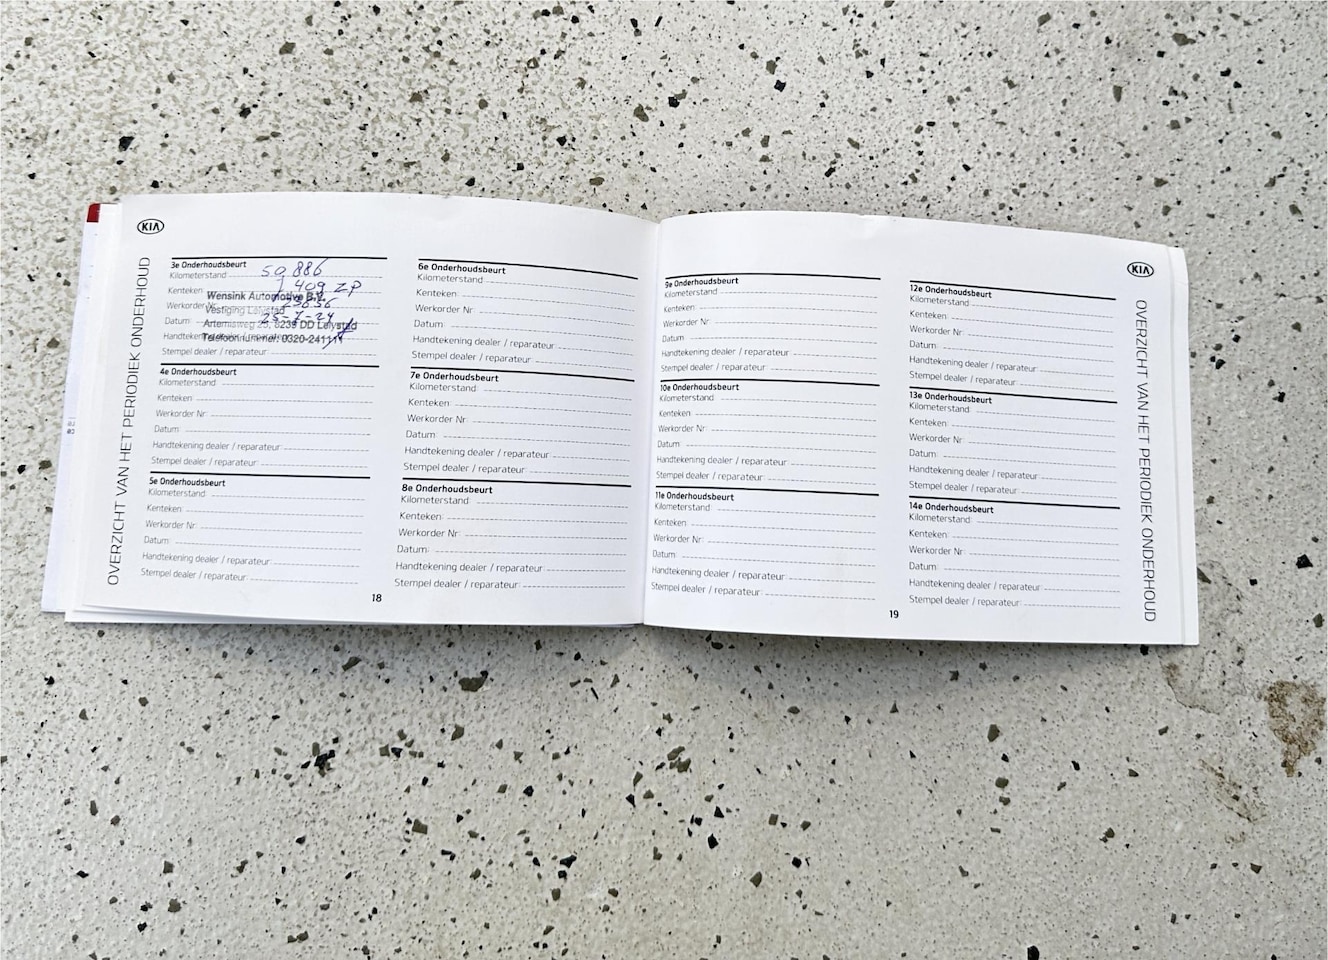 KIA
OVERZICHT VAN HET PERIODIEK ONDERHOUD
3e Onderhoudsbeurt
Kilometerstand 50.886
Kenteken:
Werkorder Nr:
Datum: 25-7-24
Handtekening dealer / reparateur:
Stempel dealer / reparateur:
Wensink Automotive B.V.
Vestiging Lelystad
Artemisweg 25, 8239 DD Lelystad
Telefoonnummer: 0320-241111
4e Onderhoudsbeurt
Kilometerstand:
Kenteken:
Werkorder Nr:
Datum:
Handtekening dealer / reparateur:
Stempel dealer / reparateur:
5e Onderhoudsbeurt
Kilometerstand:
Kenteken:
Werkorder Nr:
Datum:
Handtekening dealer / reparateur:
Stempel dealer / reparateur:
6e Onderhoudsbeurt
Kilometerstand:
Kenteken:
Werkorder Nr:
Datum:
Handtekening dealer / reparateur:
Stempel dealer / reparateur:
7e Onderhoudsbeurt
Kilometerstand:
Kenteken:
Werkorder Nr:
Datum:
Handtekening dealer / reparateur:
Stempel dealer / reparateur:
8e Onderhoudsbeurt
Kilometerstand:
Kenteken:
Werkorder Nr:
Datum:
Handtekening dealer / reparateur:
Stempel dealer / reparateur:
18
9e Onderhoudsbeurt
Kilometerstand:
Kenteken:
Werkorder Nr:
Datum:
Handtekening dealer / reparateur:
Stempel dealer / reparateur:
10e Onderhoudsbeurt
Kilometerstand:
Kenteken:
Werkorder Nr:
Datum:
Handtekening dealer / reparateur:
Stempel dealer / reparateur:
11e Onderhoudsbeurt
Kilometerstand:
Kenteken:
Werkorder Nr:
Datum:
Handtekening dealer / reparateur:
Stempel dealer / reparateur:
12e Onderhoudsbeurt
Kilometerstand:
Kenteken:
Werkorder Nr:
Datum:
Handtekening dealer / reparateur:
Stempel dealer / reparateur:
13e Onderhoudsbeurt
Kilometerstand:
Kenteken:
Werkorder Nr:
Datum:
Handtekening dealer / reparateur:
Stempel dealer / reparateur:
14e Onderhoudsbeurt
Kilometerstand:
Kenteken:
Werkorder Nr:
Datum:
Handtekening dealer / reparateur:
Stempel dealer / reparateur:
19
KIA
OVERZICHT VAN HET PERIODIEK ONDERHOUD